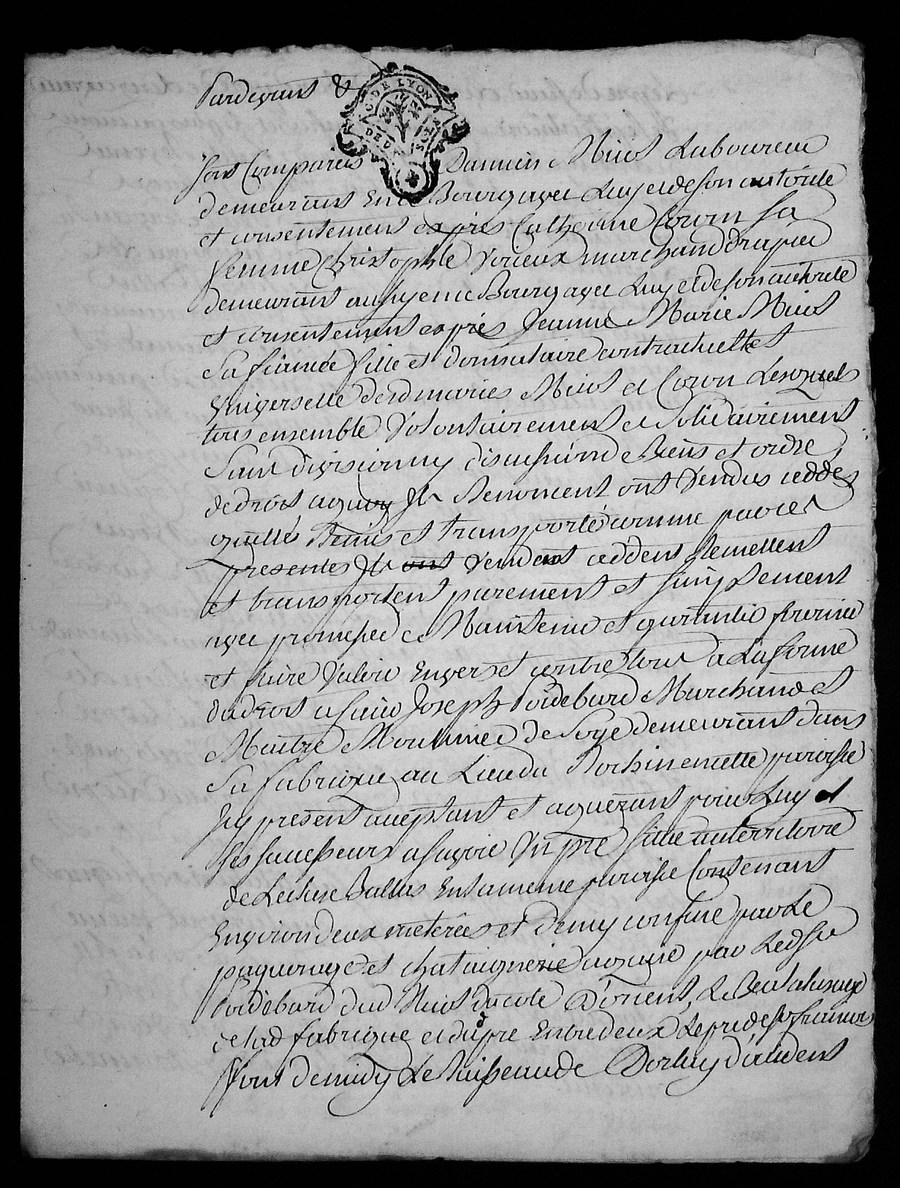 Pardevant &
G. DE LYON
Sont Comparus Damien Micol Laboureur
demeurant En ce Bourg avec Luy et de son autorité
et consentement exprés Catherine Coron sa
femme Christophle Verieux marchand drapier
demeurant aussy en ce Bourg avec Luy et de son authorité
et consentement exprés Jeanne Marie Micol
Sa fiancée fille et donnataire contractuelle et
Universelle desd mariés Micol et Coron Lesquels
tous ensemble Volontairement et Solidairement
Sans division ny discussion de Biens et ordre
de droit a quoy Ils Renoncent ont Vendus cedde
quitté Remis et transporté comme par ces
presentes Ils ont Vendent ceddent Remettent
et transportent purement et simplement
avec promesse de Maintenir et garantir fournir
et faire Valoir Envers et contre tous a La forme
du droit a Sieur Joseph Poidebard Marchand et
Maitre Moulinier de Soye demeurant dans
Sa fabrique au Lieu du paroisse
Icy present acceptant et aquerant pour Luy et
Ses successeurs a scavoir Un pré Situé au territoire
de En la meme paroisse Contenant
Environ deux meterées et demy confine par Le
paquerage et chataignerie aquise par Ledsr
Poidebard dud Micol du coté D'orient, Le
de lad fabrique et du pré Entre deux Le pré de sr francois
font de midy Le Ruisseau de Dorlay d'occident